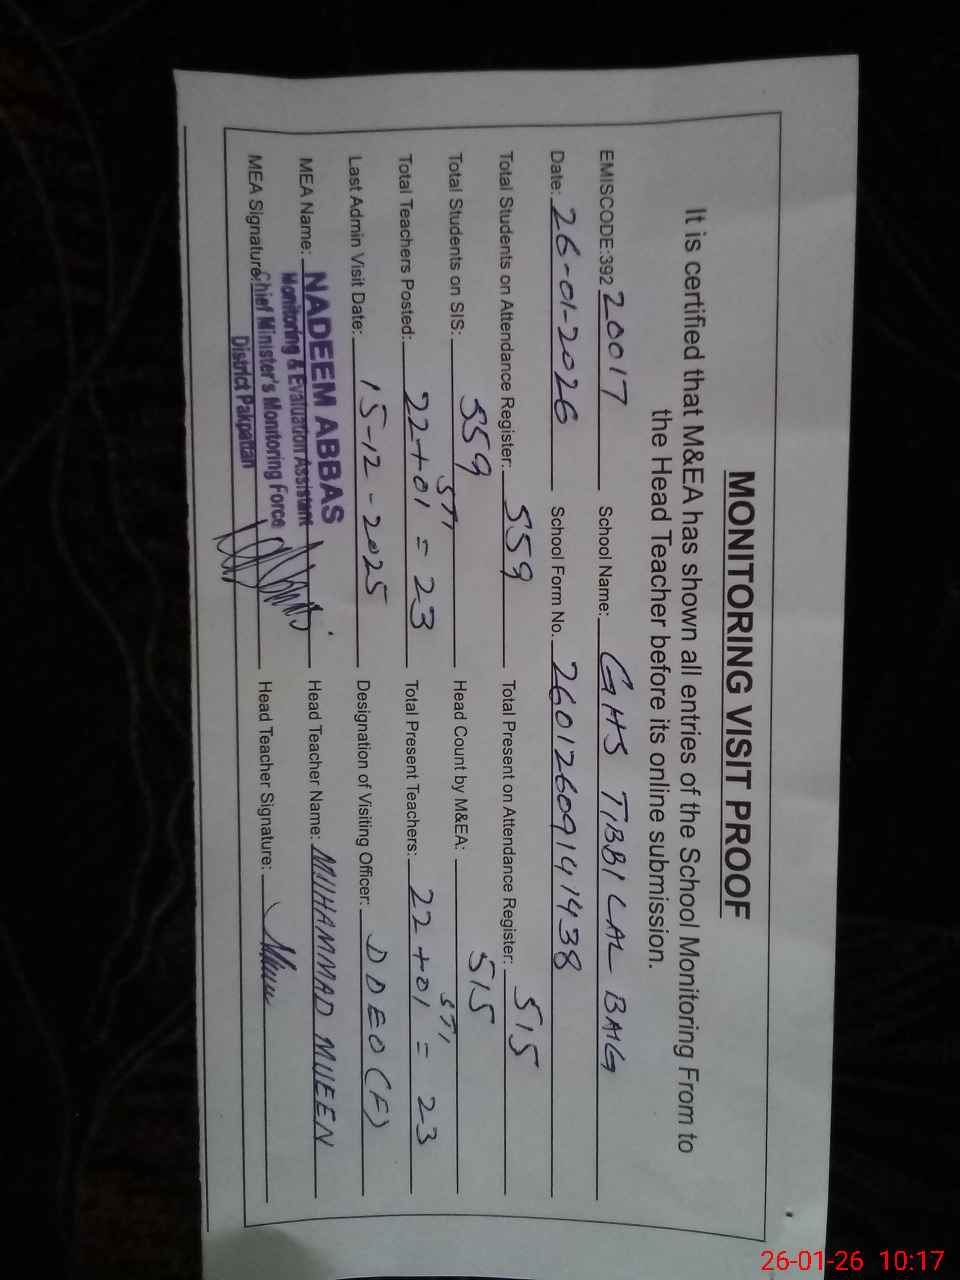 MONITORING VISIT PROOF
It is certified that M&EA has shown all entries of the School Monitoring From to
the Head Teacher before its online submission.
EMISCODE:392 20017 School Name: GHS TIBBI LAL BAIG
Date: 26-01-2026 School Form No. 26012609141438
Total Students on Attendance Register: 559 Total Present on Attendance Register: 515
Total Students on SIS: 559 Head Count by M&EA: 515
Total Teachers Posted: 22+01 STI = 23 Total Present Teachers: 22+01 STI = 23
Last Admin Visit Date: 15-12-2025 Designation of Visiting Officer: DDEO (F)
MEA Name: NADEEM ABBAS Head Teacher Name: MUHAMMAD MUEEN
Monitoring & Evaluation Assistant
MEA Signature: Chief Minister's Monitoring Force Head Teacher Signature:
District Pakpattan
26-01-26 10:17